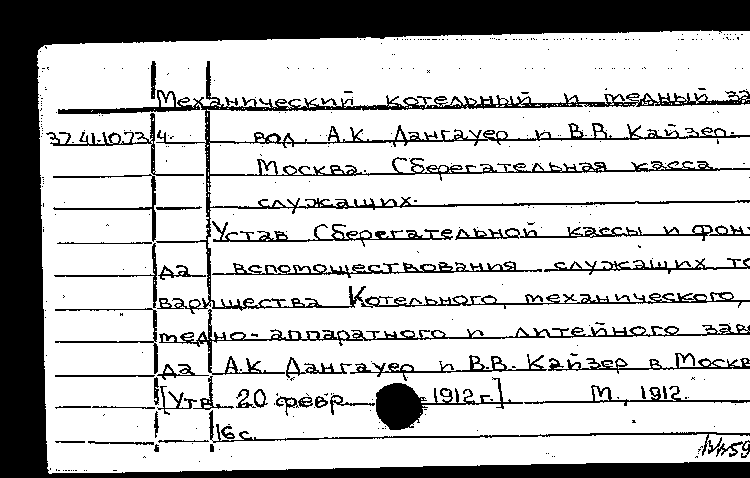 Механический котельный и медный за
37.41.10.73 4. вод А.К. Дангауер и В.В. Кайзер.
Москва. Сберегательная касса
служащих.
Устав Сберегательной кассы и фон
да вспомоществования служащих то
варищества Котельного, механического,
медно-аппаратного и литейного заво
да А.К. Дангауер и В.В. Кайзер в Москв
[Утв. 20 февр. 1912 г.]. М., 1912.
16 с.